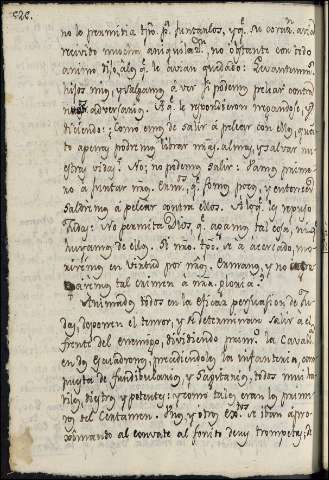 no lo permitia tpo. pa. juntarlos, y q. se covan. avia
recivido mucha aniquilaon.; no obstante con todo
animo dijo à los q. le avian quedado: Levantemonos
hijos mios, y salgamos à ver si podemos peliar contra
nros adversarios. A q. le respondieron negandose, y
diciendo: Como emos de salir à pelear con ellos, quan-
to apenas podremos librar nras. almas, y salvar nu-
estras vidas? No; no podemos salir: Vamos prime-
ro à juntar nros. Ermans., q. somos pocos, y entonces
saldremos à pelear contra ellos. A lo q. les repuso
Judas: No permita Dios, q. agamos tal cosa, ni q.
huiramos de ellos. Si nro. tpo. se à acercado, mo-
riremos en virtud por nros. Ermanos, y no
daremos tal crimen à nra. gloria.
Animados todos en la eficaz persuacion de Ju-
das, deponen el temor, y se determinan salir à el
frente del enemigo, dividiendo primo. la Cavall.
en dos Esquadrones, precediendoles la infanteria, com-
puesta de fundibularios, y Sagitarios, todos mui ha-
viles, diestros, y potentes; y como tales eran los prime-
ros del Certamen. Unos, y otros extos. se iban apro-
ximando al convate al sonito de sus trompetas; de